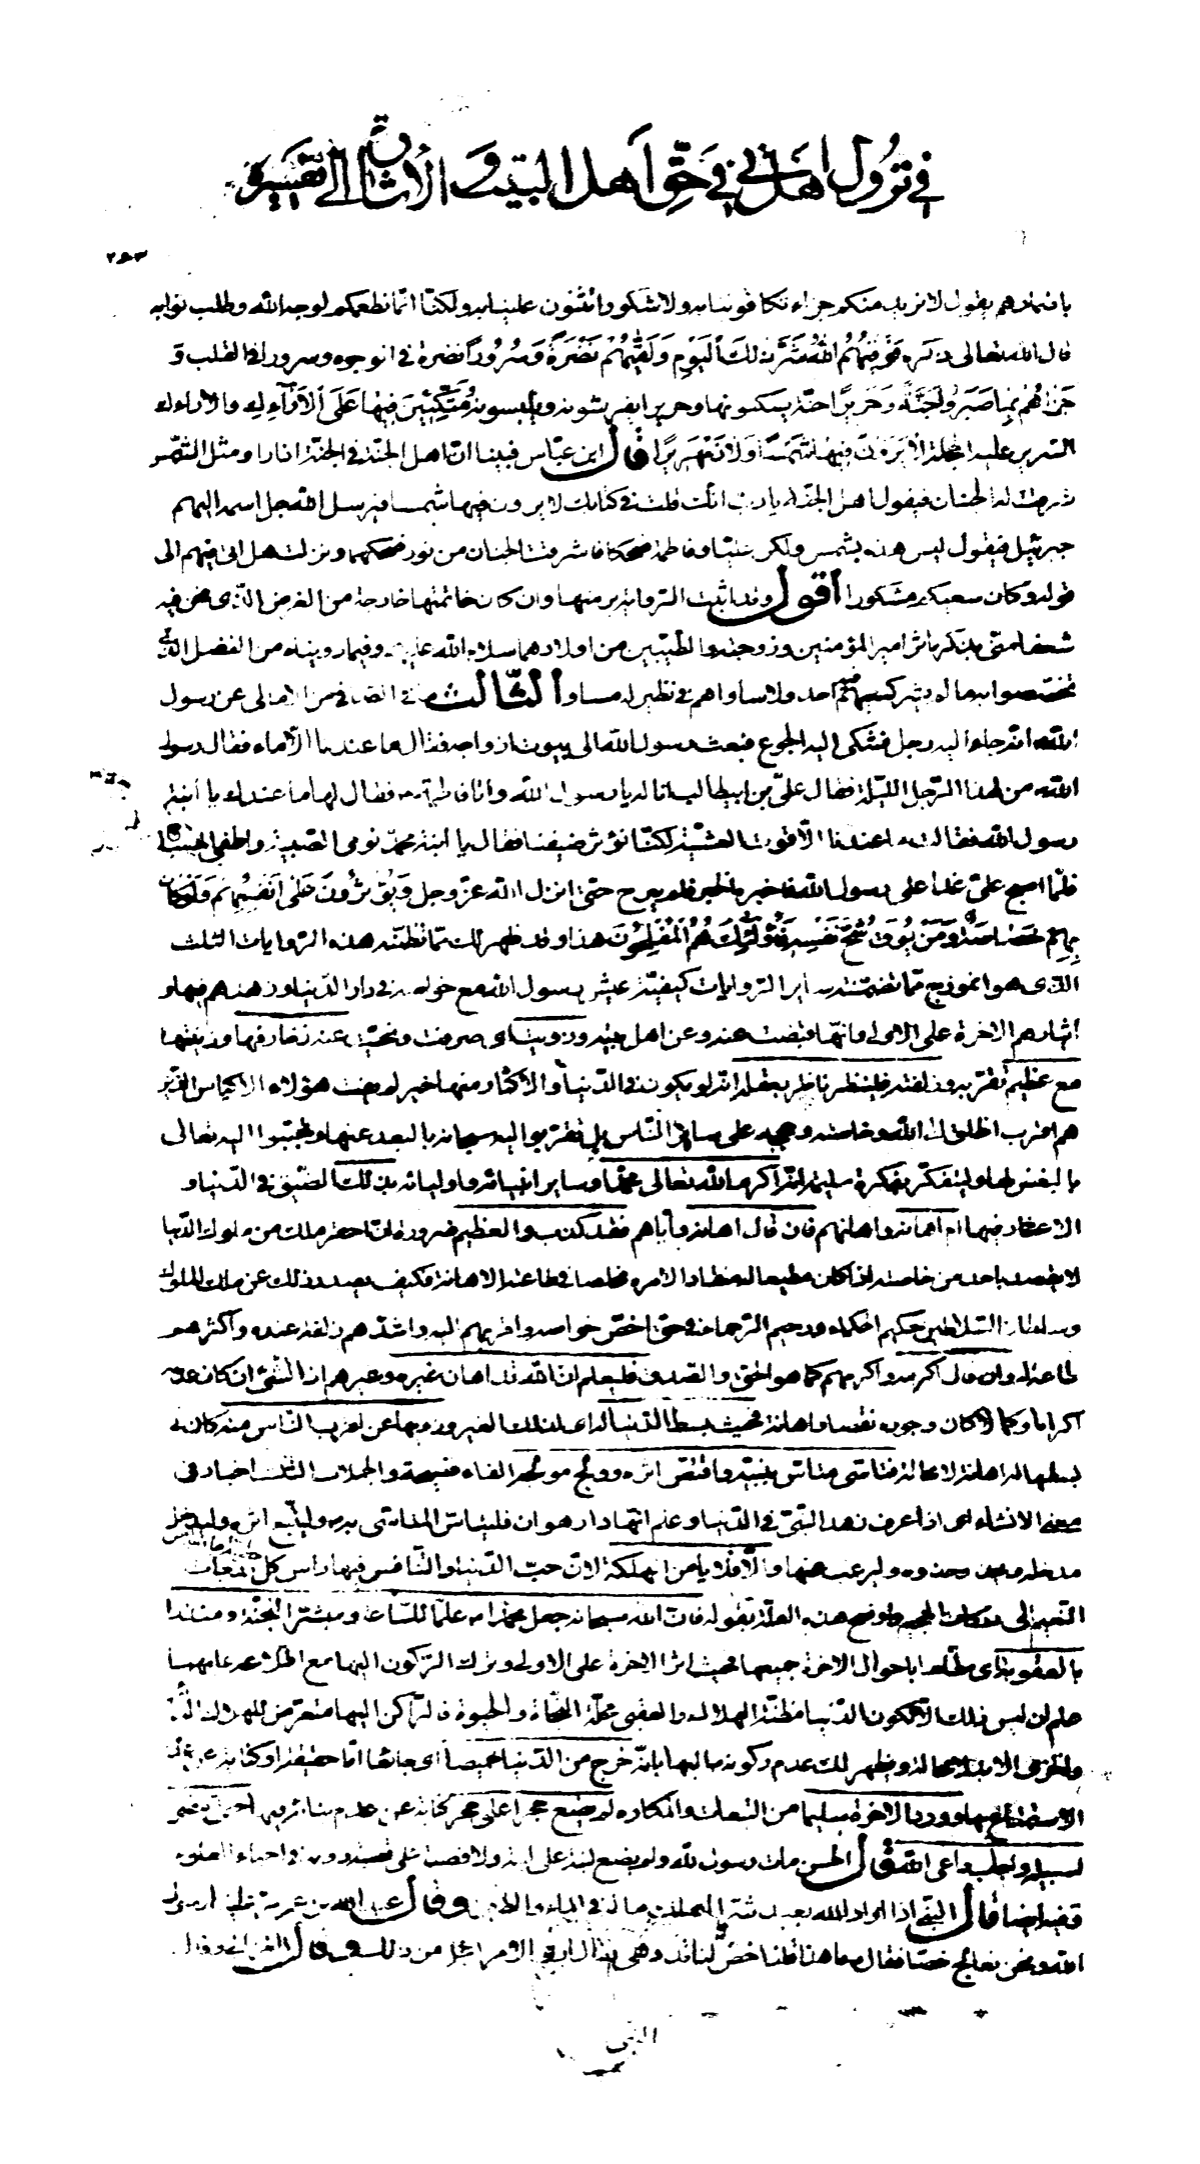 في نزول هل اتى في حق اهل البيت و الاشارة الى تفسيره
٢٥٣
باضمارهم يقول لا نريد منكم جزاء تكافوننا به ولا شكورا تثنون علينا به ولكنا انما نطعمكم لوجه الله وطلب ثوابه
قال الله تعالى ذكره فَوَقٰيهُمُ اللهُ شَرَّ ذٰلِكَ الْيَوْمِ وَلَقّٰيهُمْ نَضْرَةً وَسُرُورًا نضرة في الوجوه وسرورا في القلب و
جَزٰاهُمْ بِمٰا صَبَرُوا جَنَّةً وَحَرِيرًا جنة يسكنونها وحريرا يفترشونه ويلبسونه مُتَّكِئِينَ فِيهٰا عَلَى الْأَرٰائِكِ والاريكة
السرير عليه الحجلة لٰا يَرَوْنَ فِيهٰا شَمْسًا وَلٰا زَمْهَرِيرًا قال ابن عباس فبينا اهل الجنة في الجنة اذا راوا مثل الشمس
اشرقت لها الجنان فيقول اهل الجنة يا رب انك قلت في كتابك لا يرون فيها شمسا فيرسل الله جل اسمه اليهم
جبرئيل فيقول ليس هذه بشمس ولكن عليا وفاطمة ضحكا فاشرقت الجنان من نور ضحكهما ونزلت هل اتى فيهم الى
قوله وكان سعيكم مشكورا اقول وقد اثبت الرواية منها وان كان خاتمتها خارجة من الغرض الذي نحن فيه
شغفا مني بذكر ماثر امير المؤمنين وزوجته والطيبين من اولادهما سلام الله عليهم وفيما رويناه من الفضل الذي
تخصصوا به ما لم يشركهم فيه احد ولا ساواهم في نظيره مساو الثالث ما في الصافي من الامالي عن رسول
الله انه جاء اليه رجل فشكى اليه الجوع فبعث رسول الله الى بيوت ازواجه فقلن ما عندنا الا الماء فقال رسول
الله من لهذا الرجل الليلة فقال علي بن ابيطالب انا له يا رسول الله واتى فاطمة فقال لها ما عندك يا ابنة
رسول الله فقالت ما عندنا الا قوت العشية لكنا نؤثر ضيفنا فقال يا ابنة محمد نومي الصبية واطفي المصباح
فلما اصبح علي غدا على رسول الله فاخبره الخبر فلم يبرح حتى انزل الله عز وجل وَيُؤْثِرُونَ عَلىٰ اَنْفُسِهِمْ وَلَوْ كٰانَ
بِهِمْ خَصٰاصَةٌ وَمَنْ يُوقَ شُحَّ نَفْسِهِ فَاُولٰئِكَ هُمُ الْمُفْلِحُونَ هذا وقد ظهر لك مما تظمنته هذه الروايات الثلث
الذي هو انموذج مما تضمنته ساير الروايات كيفية عيش رسول الله مع خواصه في دار الدنيا وزهدهم فيها و
ايثارهم الاخرة على الاولى وانها قبضت عنه وعن اهل بيته وزويت اي صرفت ونحيت عنه زخارفها وزينتها
مع عظيم تقربه وزلفته فلينظر ناظر بعقله انه لو يكون في الدنيا والاكثار منها خير لم يفت هؤلاء الاكياس الذين
هم اقرب الخلق الى الله وخاصته وحججه على سائر الناس بل تقربوا اليه سبحانه بالبعد عنها وتحببوا اليه تعالى
بالبغض لها وليتفكر بفكرة سليمة اءكرم الله تعالى محمدا وساير انبيائه واوليائه بذلك الضيق في الدنيا و
الاعسار فيها ام اهانه واهانهم فان قال اهانه واياهم فقد كذب والعظيم ضرورة ان احقر ملك من ملوك الدنيا
لا يقصد باحد من خاصته اذا كان مطيعا له منقادا لامره مخلصا في طاعته الاهانة فكيف يصدر ذلك عن ملك الملوك
وسلطان السلاطين حكيم الحكماء ورحيم الرحماء في حق اخص خواصه واقربهم اليه واشدهم زلفة عنده واكثرهم
طاعة له وان قال اكرمه واكرمهم كما هو الحق والصدق فليعلم ان الله قد اهان غيره وغيرهم اذ الشيء ان كان عدمه
اكراما وكمالا كان وجوده نقصا واهانة فحيث بسط الدنيا له اي لذلك الغير وزويها عن اقرب الناس منه كان
بسطها له اهانة لا محالة فتاسى متاس بنبيه واقتص اثره وولج مولجه الفاء فصيحة والجملات الثلث اخبار في
معنى الانشاء اي اذا عرف زهد النبي في الدنيا وعلم انها دار هوان فليتاس المتاسي به وليتبع اثره وليدخل
مدخله وليحذ حذوه وليرغب عنها والا فلا يامن الهلكة لان حب الدنيا والتنافس فيها راس كل
بالعقوبة اي مطلعا باحوال الاخرة جميعها فحيث اثر الاخرة على الاولى وترك الركون اليها مع اطلاعه عليهما
علم ان ليس ذلك الا لكون الدنيا مظنة الهلاك والعقبى محل النجاة والحيوة فالراكن اليها متعرض للهلاك
والخزى الابد لا محالة ويظهر لك عدم ركونه ما اليها بانه خرج من الدنيا خميصا اي جائعا اما حقيقة او كناية عن
الاستمتاع بها وورد الاخرة سليما من التبعات والمكاره لم يضع حجرا على حجر كناية عن عدم بنائه فيها حتى مضى
لسبيله واجاب داعي الله قال الحسن مات رسول الله ولم يضع لبنة على لبنة ولا قصبة على قصبة
فيه ايضا قال النبي اذا اراد الله بعبد شرا اهلك ماله في الماء والطين وقال عبد الله بن عمر
الله ونحن نعالج خصا فقال ما هذا قلنا خص لنا قد وهى فقال ارى الامر اعجل من ذلك وقال
النبي